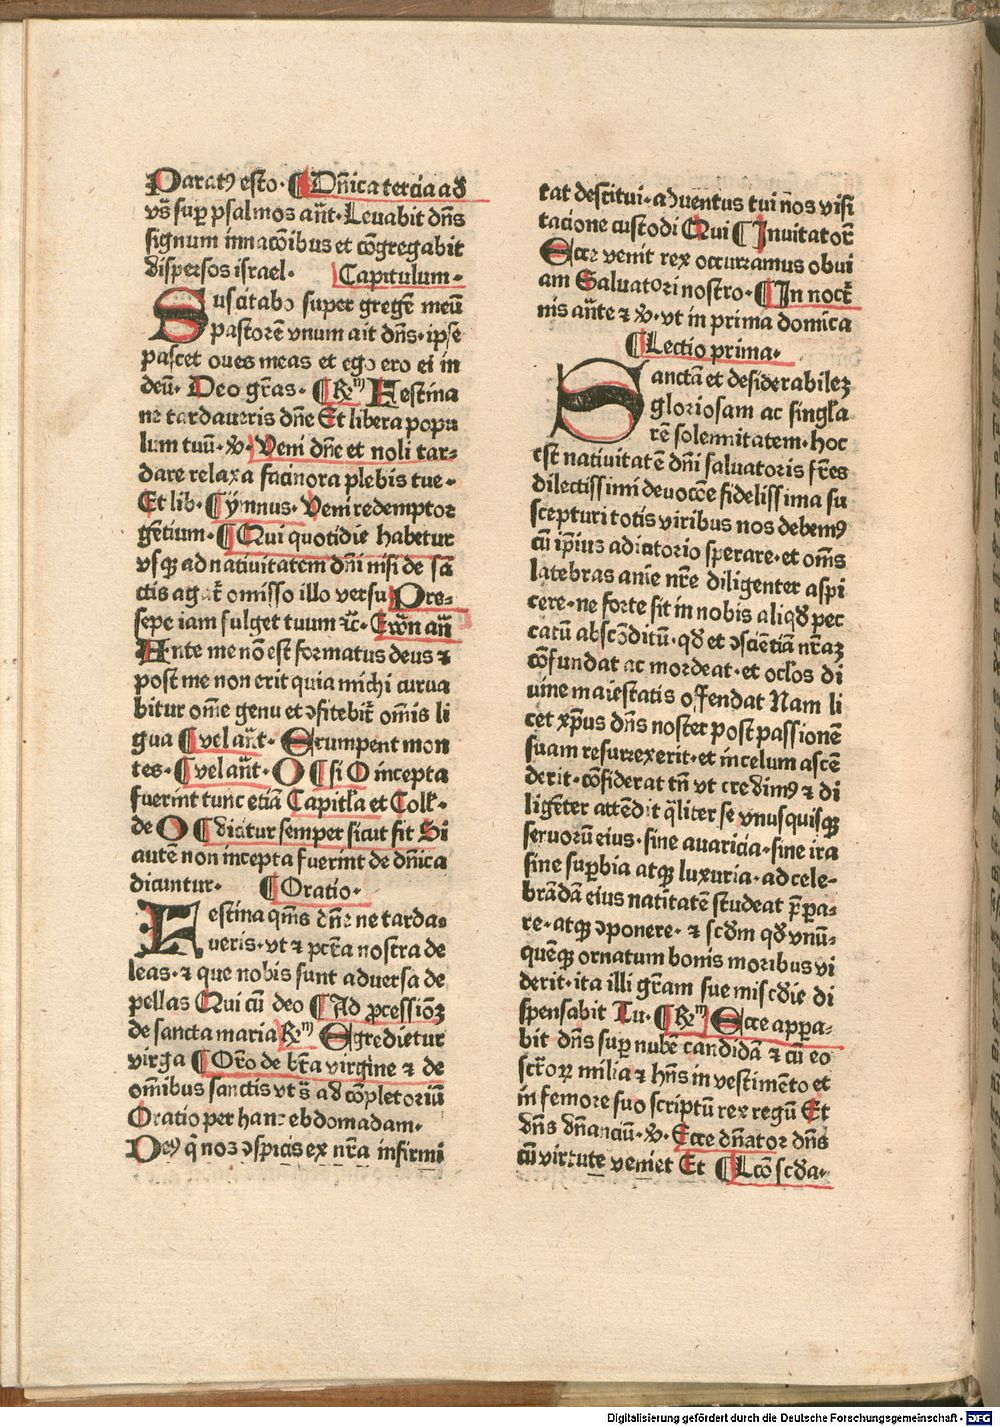 Paratꝰ esto· ¶ Dñica tercia ad
vs̄ suꝑ psalmos añt· Leuabit dñs
signum in nacōibus et cōgregabit
dispersos israel· Capitulum·
Suscitabo super gregē meū
pastorē vnum ait dñs· ipse
pascet oues meas et ego ero ei in
deū· Deo grās· ¶ Rm̄ Festina
ne tardaueris dñe Et libera popu
lum tuū· ꝟ· Veni dñe et noli tar⸗
dare relaxa facinora plebis tue·
Et lib· ¶ ymnus· Veni redemptor
gētium· ¶ Qui quotidie habetur
vsqꝫ ad nativitatem dñi nisi de sā
ctis agat̄ omisso illo versu Pre⸗
sepe iam fulget tuum ꝛc̄· Ewn̄ añ
Ante me nō est formatus deus ꝛ
post me non erit quia michi curua
bitur omē genu et ꝯfitebit̄ om̄is li
gua ¶ vel añt· Erumpent mon
tes· ¶ vel añt· O ¶ si O incepta
fuerint tunc etiā Capitl̄a et Coll̄·
de O ¶ dicatur semper sicut fit Si
autē non incepta fuerint de dñica
dicuntur· ¶ Oratio·
Festina qm̄s dñe ne tarda⸗
ueris· vt ꝛ pctā nostra de
leas· ꝛ que nobis sunt aduersa de
pellas Qui cū deo ¶ Ad ꝓcessiōꝫ
de sancta maria Rm̄ Egredietur
virga ¶ Orō de btā virgine ꝛ de
omībus sanctis vt s̄ ad cōpletoriū
Oratio per hanc ebdomadam·
Deꝰ q̄ nos ꝯspicis ex nrā infirmi
tat destitui· aduentus tui nos visi
tacione custodi Qui ¶ Inuitatorē
Ecce venit rex occurramus obui
am Saluatori nostro· ¶ In noct̄
nis añte ꝛ ꝟ· vt in prima domica
¶ Lectio prima·
Sanctā et desiderabilez
gloriosam ac singl̄a
rē solennitatem· hoc
est nativitatē dñi saluatoris fr̄es
dilectissimi deuocōe fidelissima su
scepturi totis viribus nos debemꝰ
cū ip̄ius adiutorio sperare· et om̄s
latebras anīe nrē diligenter aspi
cere· ne forte sit in nobis aliqd̄ pec
catū abscōditū· qd̄ et ꝯsciētiā nrāꝫ
cōfundat ac mordeat· et ocl̄os di
uine maiestatis offendat Nam li
cet xp̄us dñs noster post passionē
suam resurrexerit· et in celum ascē
derit· cōsiderat tñ vt credimꝰ ꝛ di
ligēter attēdit q̄liter se vnusquisqꝫ
seruorū eius· sine auaricia· sine ira
sine suꝑbia atqꝫ luxuria· ad cele⸗
brādā eius natitatē studeat p̄ꝑa⸗
re· atqꝫ ꝯponere· ꝛ scd̄m qd̄ vnū⸗
quēqꝫ ornatum bonis moribus vi
derit· ita illi gr̄am sue miscd̄ie di
spensabit Tu· ¶ Rm̄ Ecce appa⸗
bit dñs suꝑ nubē candidā ꝛ cū eo
sctōꝝ milia ꝛ hñs in vestimēto et
in femore suo scriptū rex regū Et
dñs dñanciū· ꝟ· Ecce dñator dñs
cū virtute veniet Et ¶ Lcō scd̄a·
Digitalisierung gefördert durch die Deutsche Forschungsgemeinschaft - DFG